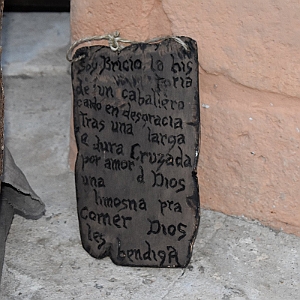 Soy Bricio la his
toria
de un caballero
caido en desgracia
tras una larga
e dura Cruzada
por amor d Dios
una
limosna pra
comer Dios
les bendiga